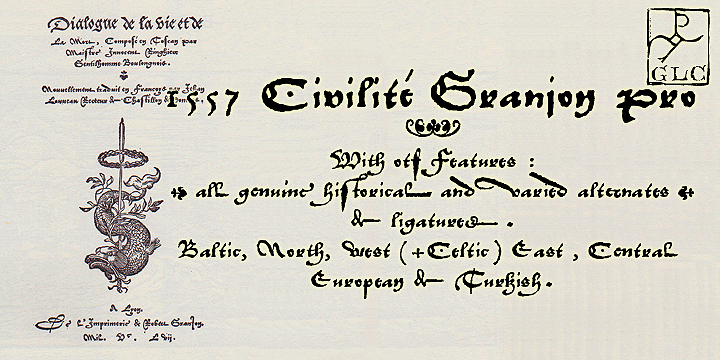 Dialogue de la vie et de
La Mort, Composé en Toscan par
Maistre Innocent Ringhier
Gentilhomme Boulongnois.
Nouvellement traduit en Françoys par Jehan
Louveau Recteur de Chastillon de Dombes.
A Lyon.
De l'Imprimerie de Robert Granjon.
Mil. Vc. Lvij.
P
GLC
1557 Civilité Granjon Pro
With otf Features :
all genuine historical and varied alternates
& ligatures .
Baltic, North, West (+Celtic) East , Central
European & Turkish.